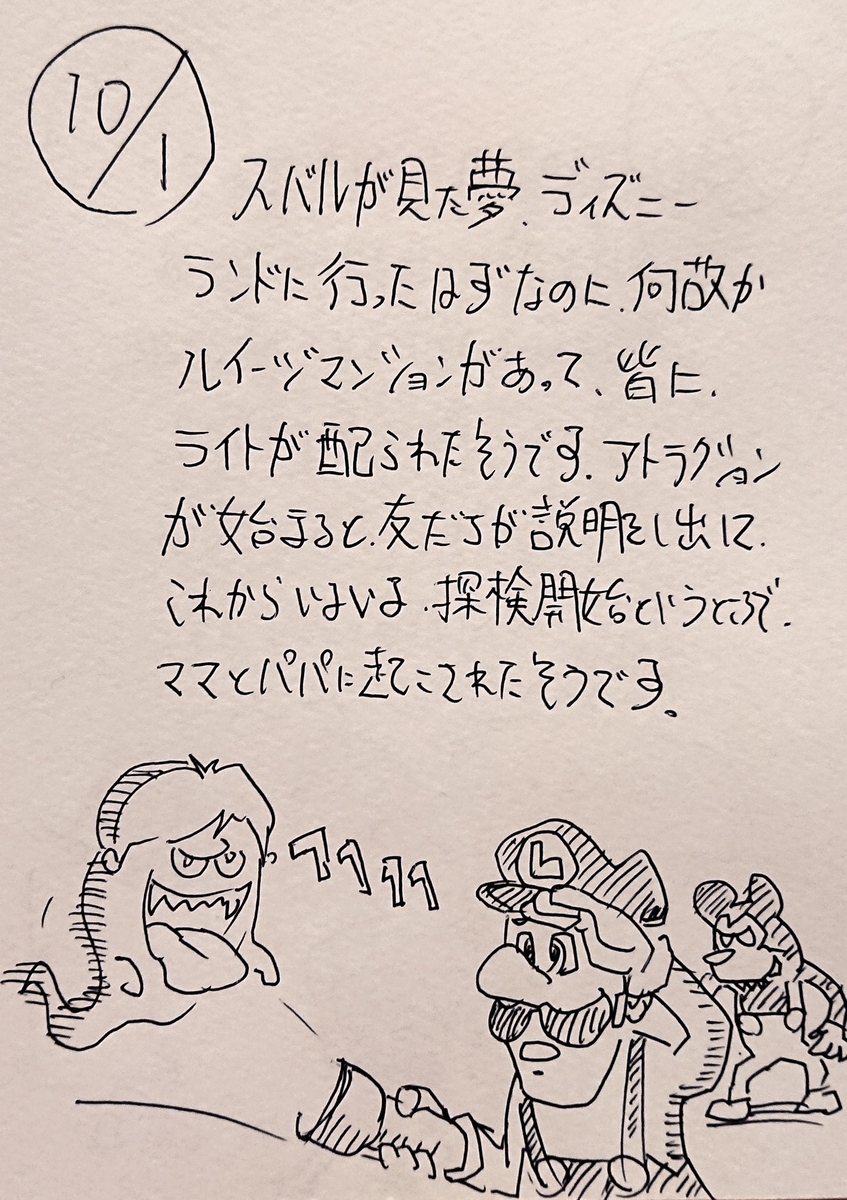 10/1
スバルが見た夢、ディズニー
ランドに行ったはずなのに、何故か
ルイージマンションがあって、皆に、
ライトが配られたそうです。アトラクション
が始まると、友だちが説明をし出して、
これからいよいよ、探検開始というところで、
ママとパパに起こされたそうです。
L